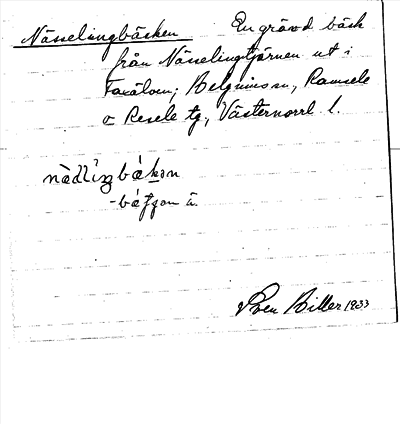 Nässelingbäcken En grävd bäck
från Nässelingtjärnen ut i
Faxälven; Helgumssn, Ramsele
o Resele tg., Västernorrl l.
nàdlìŋbǽkən
Sven Hiller 1933